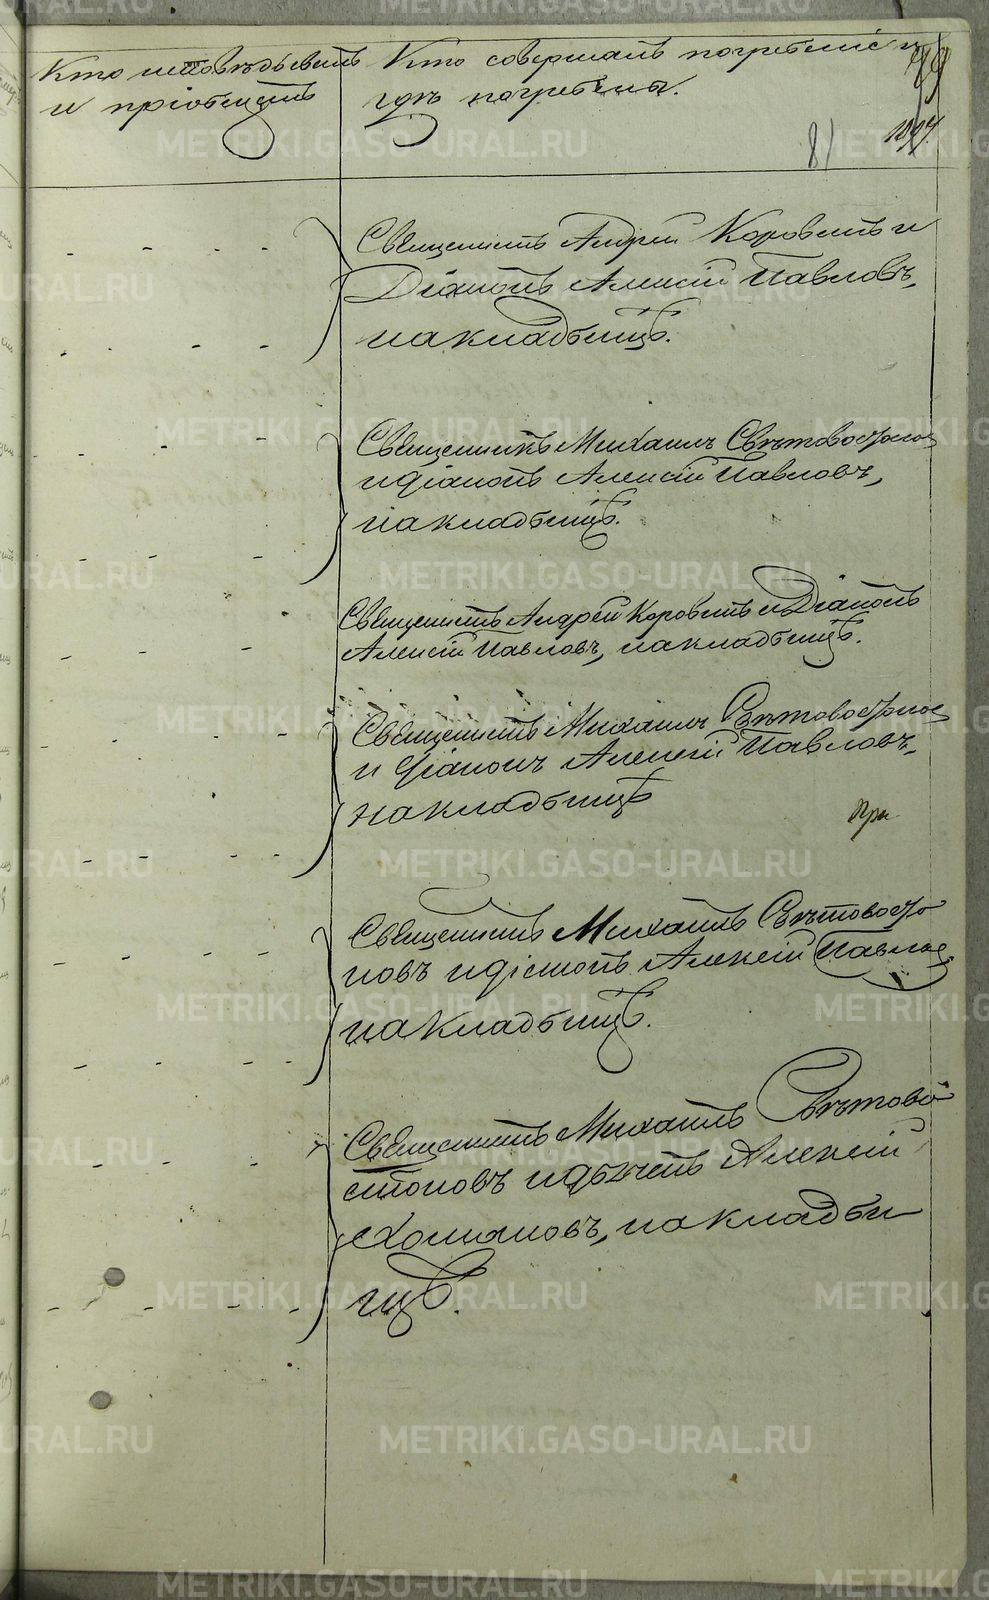 Кто исповѣдывалъ Кто совершалъ погребеніе и
и пріобщалъ гдѣ погребены.
81
Священникъ Андрей Коровинъ и
Діаконъ Алексій Павловъ,
на кладбищѣ.
Священникъ Михаилъ Свѣтовостоновъ
и діаконъ Алексій Павловъ,
на кладбищѣ.
Священникъ Андрей Коровинъ и Діаконъ
Алексій Павловъ, на кладбищѣ.
Священникъ Михаилъ Свѣтовостоновъ
и Діаконъ Алексій Павловъ,
на кладбищѣ
При
Священникъ Михаилъ Свѣтовосто
новъ и діаконъ Алексій Павловъ,
на кладбищѣ.
Священникъ Михаилъ Свѣтово
стоновъ и дьячекъ Алексій
Хомяковъ, на кладби
щѣ.
METRIKI.GASO-URAL.RU